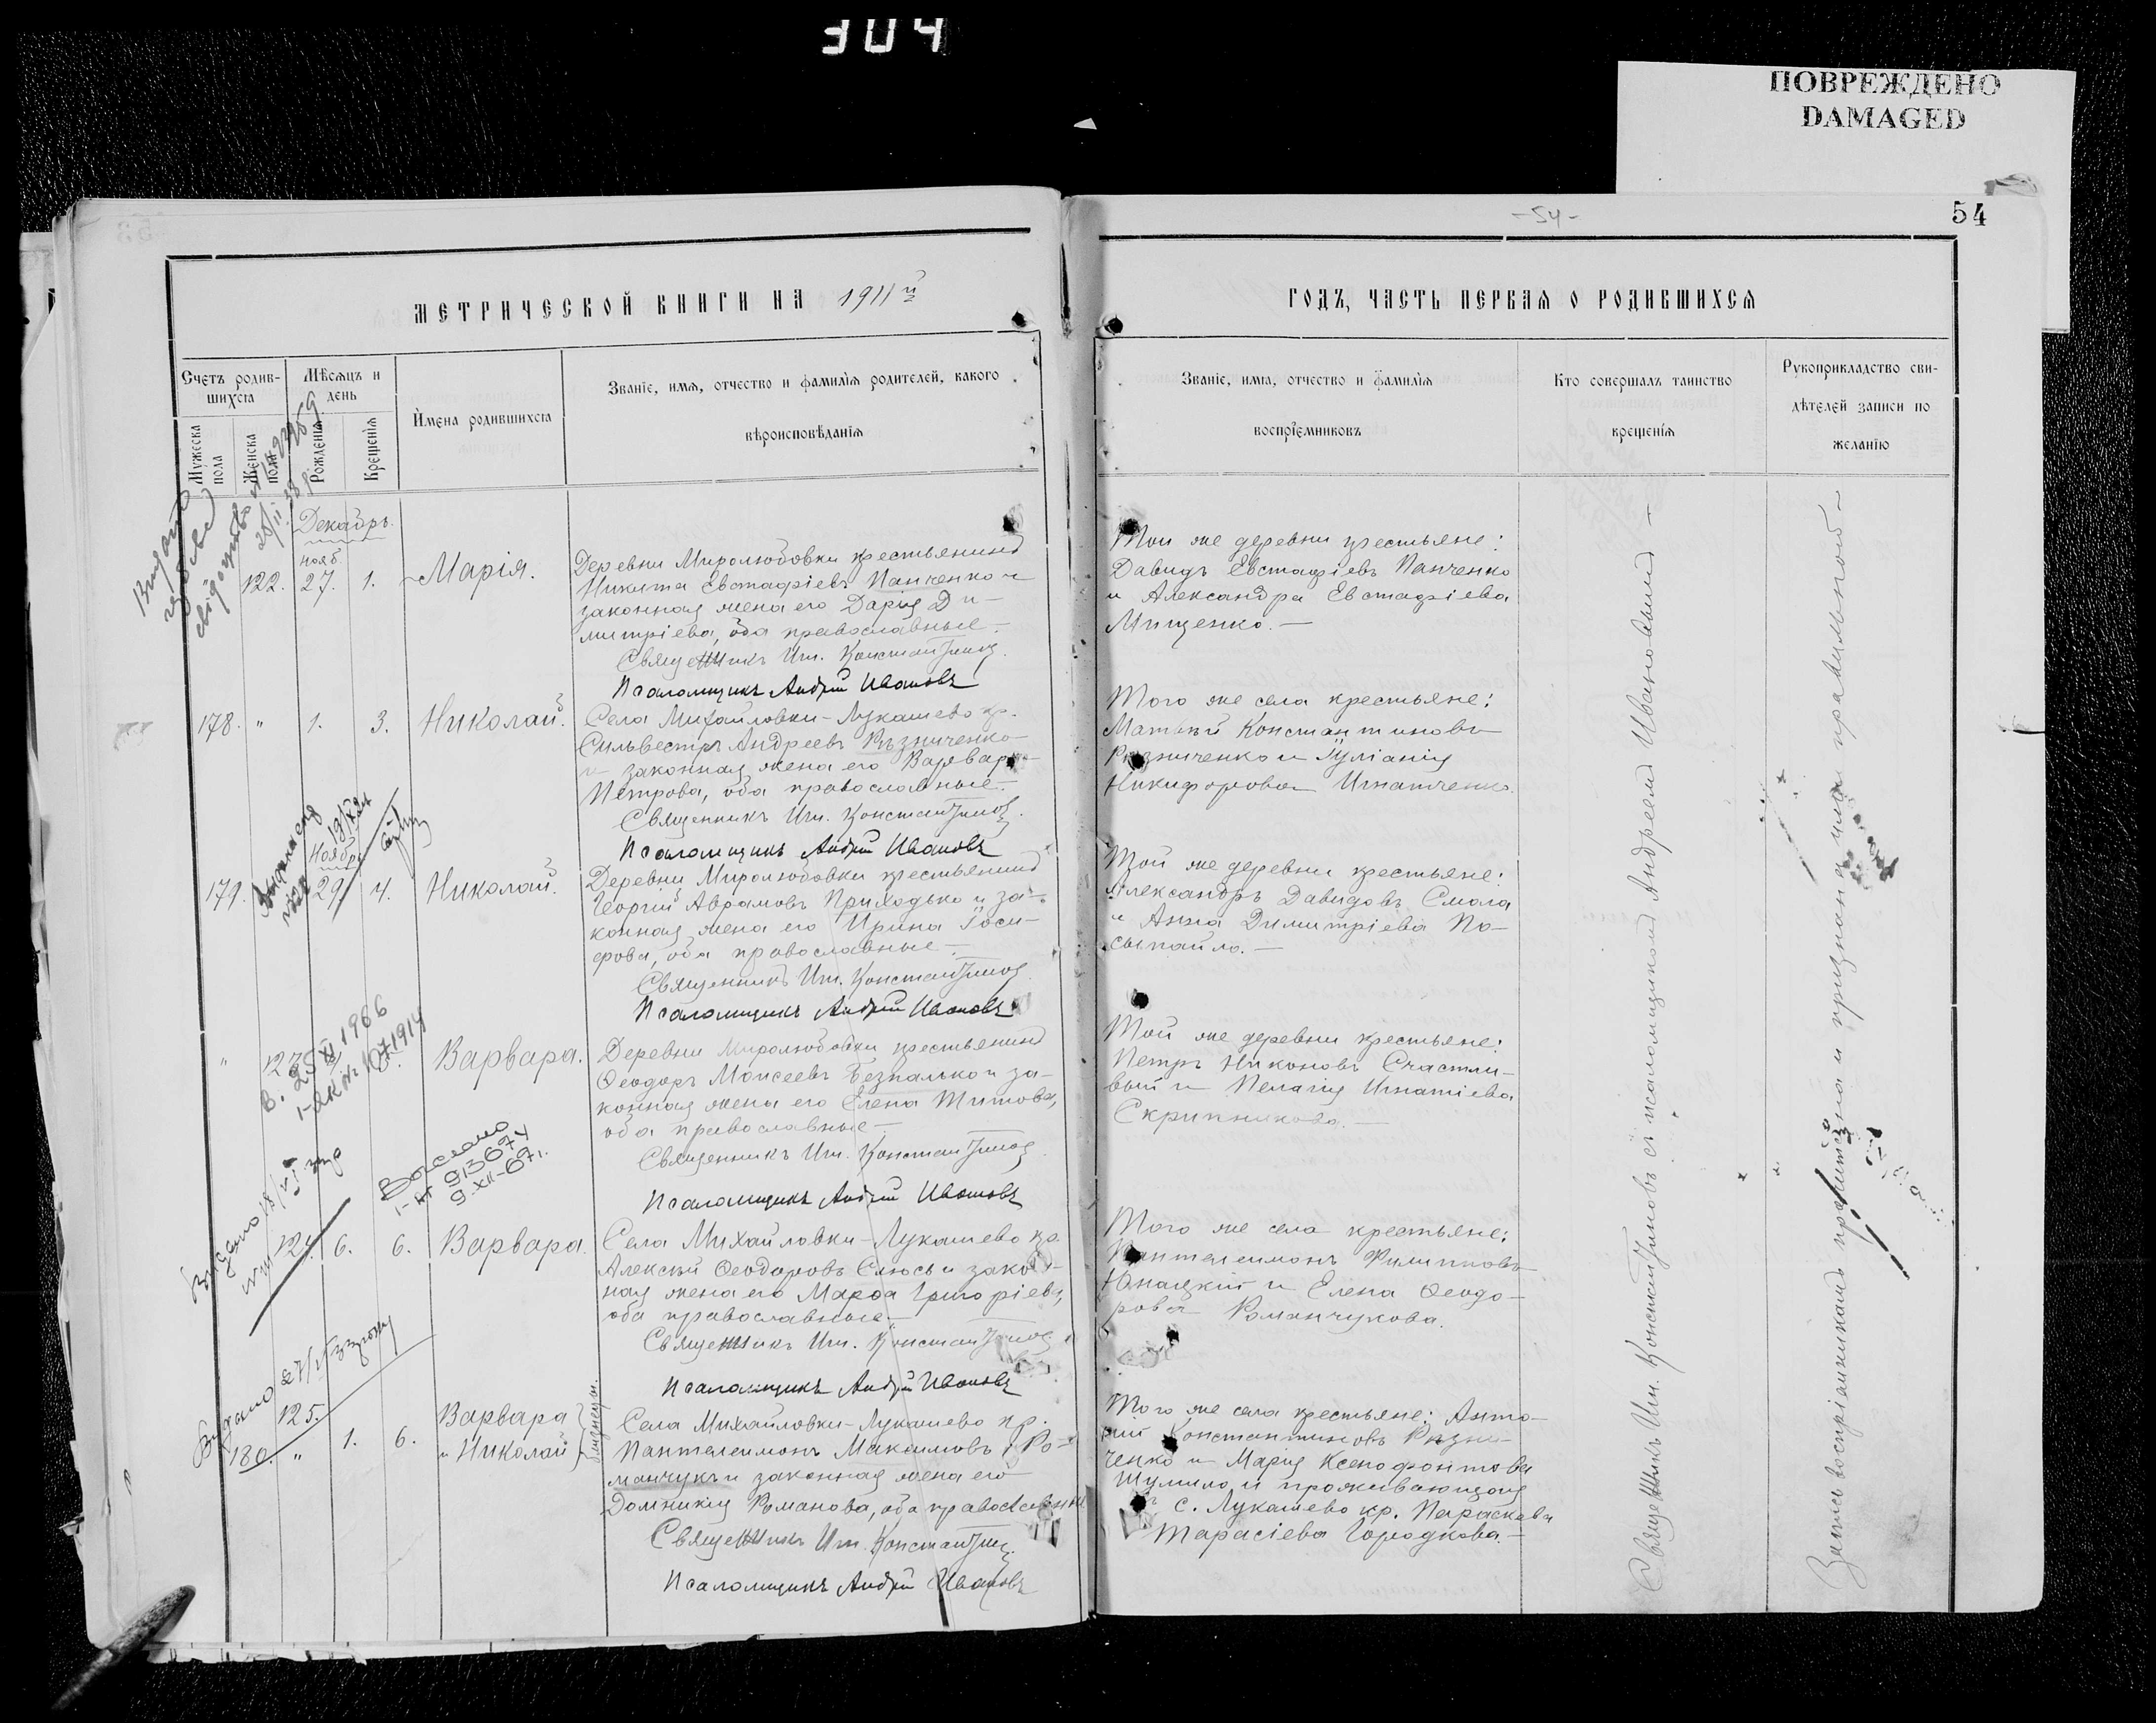 304
ПОВРЕЖДЕНО
DAMAGED
- 54 -
54
МЕТРИЧЕСКОЙ КНИГИ НА 1911й
ГОДЪ, ЧАСТЬ ПЕРВАЯ О РОДИВШИХСЯ
Счетъ родив-
шихся
Мѣсяцъ и
день
Мужеска
пола
Женска
пола
Рожденія
Крещенія
Имена родившихся
Званіе, имя, отчество и фамилія родителей, какого
вѣроисповѣданія
Званіе, имя, отчество и фамилія
воспріемниковъ
Кто совершалъ таинство
крещенія
Рукоприкладство сви-
дѣтелей записи по
желанію
Декабрь.
нояб.
122. 27. 1. Марія.
Деревни Миролюбовки крестьянинъ
Никита Евстафіевъ Панченко и
законная жена его Дарія Ди-
митріева, оба православные.
Священникъ Ил. Константинов
Псаломщикъ Андрей Ивановъ
Той же деревни крестьяне:
Давидъ Евстафіевъ Панченко
и Александра Евстафіева
Мищенко.
178. " 1. 3. Николай.
Села Михайловки-Лукашево кр.
Сильвестръ Андреевъ Рѣзниченко
и законная жена его Варвара
Петрова, оба православные.
Священникъ Ил. Константинов
Псаломщикъ Андрей Ивановъ
Того же села крестьяне:
Матвѣй Константиновъ
Рѣзниченко и Іуліанія
Никифорова Игнатченко.
Ноябрь
179. 29. 4. Николай.
Деревни Миролюбовки крестьянинъ
Георгій Аврамовъ Приходько и за-
конная жена его Ирина Іоси-
фова, оба православные
Священникъ Ил. Константинов
Псаломщикъ Андрей Ивановъ
Той же деревни крестьяне:
Александръ Давидовъ Смола
и Анна Димитріева По-
сыпайло.
" 123. Варвара.
В. 25 XI 1966
Деревни Миролюбовки крестьянинъ
Ѳеодоръ Моисеевъ Безпалько и за-
конная жена его Елена Титова,
оба православные
Священникъ Ил. Константинов
Псаломщикъ Андрей Ивановъ
Той же деревни крестьяне:
Петръ Никоновъ Счастли-
вый и Пелагія Игнатіева
Скрипникова.
Выслано
9.XII-67г.
124. 6. 6. Варвара.
Села Михайловки-Лукашево кр.
Алексѣй Ѳеодоровъ Слюсь и закон-
ная жена его Марѳа Григоріева,
оба православные
Священникъ Ил. Константинов
Псаломщикъ Андрей Ивановъ
Того же села крестьяне:
Пантелеимонъ Филипповъ
Юнацкій и Елена Ѳеодо-
рова Романчукова.
125.
180. " 1. 6. Варвара
и Николай } близнецы.
Села Михайловки-Лукашево кр.
Пантелеимонъ Максимовъ Ро-
манчукъ и законная жена его
Домникія Романова, оба православные
Священникъ Ил. Константинов
Псаломщикъ Андрей Ивановъ
Того же села крестьяне: Анто-
ній Константиновъ Рѣзни-
ченко и Марія Ксенофонтова
Шумило и проживающая
въ с. Лукашево кр. Параскева
Тарасіева Городкова.
Священникъ Ил. Константиновъ съ псаломщикомъ Андреемъ Ивановымъ
Запись воспріемникамъ прочитана и признана ими правильной